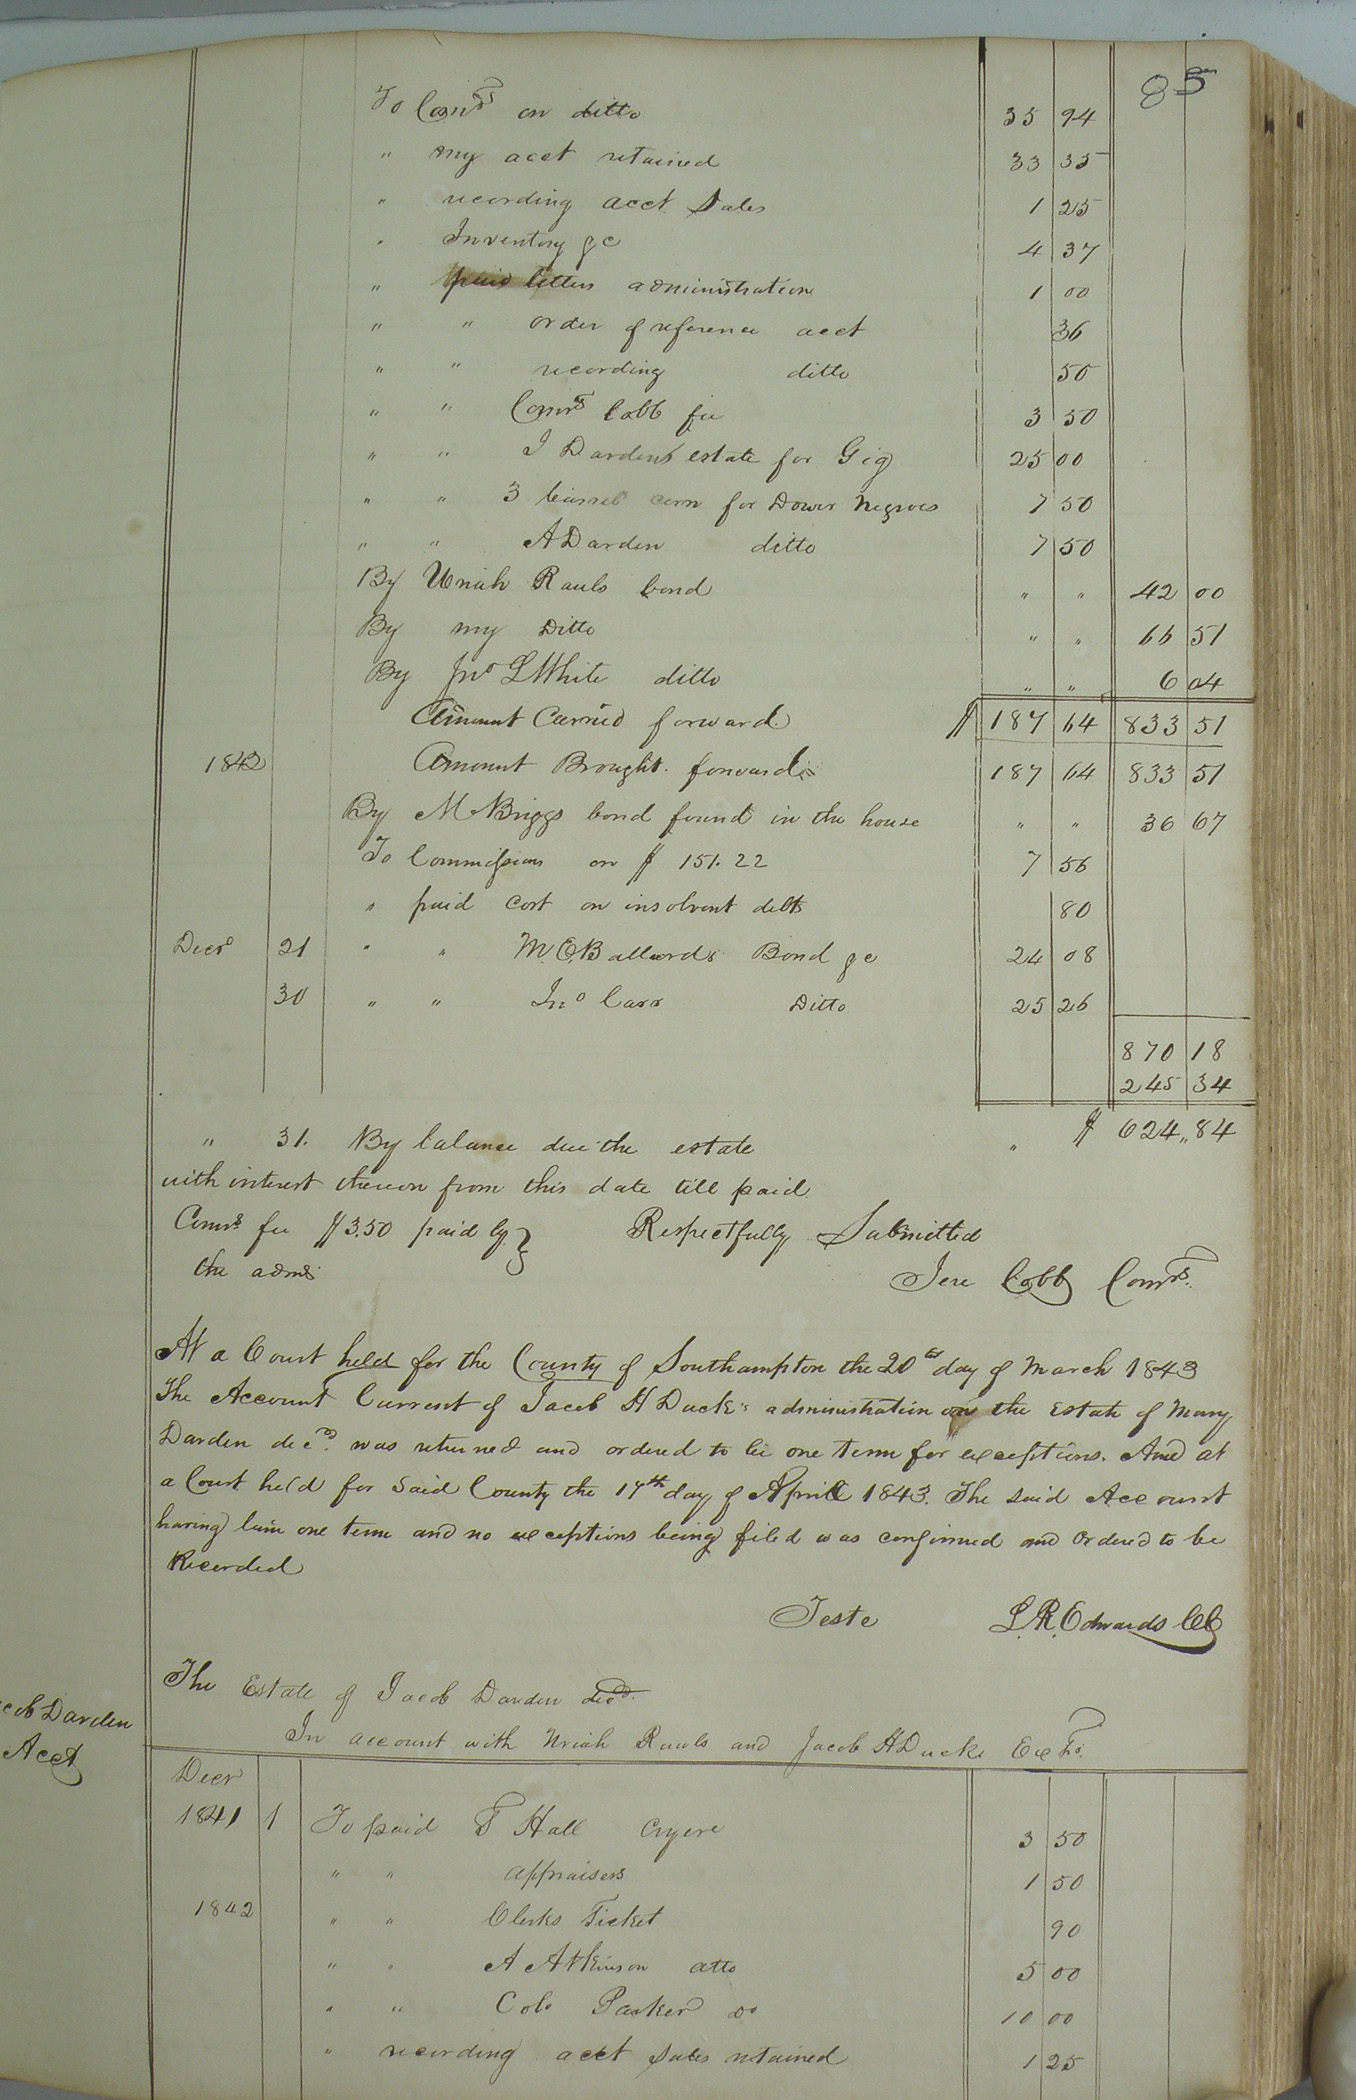 85
To Comrs on ditto 35 94
" my acct retained 33 35
" recording acct Sales 1 25
" Inventory &c 4 37
" paid letters administration 1 00
" " order of reference acct 36
" " recording ditto 50
" " Comrs Cobb fee 3 50
" " J Dardens estate for Gig 25 00
" " 3 barrels corn for Dower Negroes 7 50
" " A Darden ditto 7 50
By Uriah Rawls bond " " 42 00
By my Ditto " " 66 51
By Jno L White ditto " " 6 04
Amount Carried forward $ 187 64 833 51
1842 Amount Brought forward 187 64 833 51
By M Briggs bond found in the house " " 36 67
To Commissions on $ 151.22 7 56
" paid cost on insolvent debts 80
Decr 21 " " M. E. Ballards Bond &c 24 08
30 " " Jno Carr Ditto 25 26
870 18
245 34
" 31. By balance due the estate " $ 624 " 84
with interest thereon from this date till paid
Comrs fee $3.50 paid by } Respectfully Submitted
the admr
Jere Cobb Comrs.
At a Court held for the County of Southampton the 20th day of March 1843
The Account Current of Jacob H Duck's administration on the Estate of Mary
Darden decd. was returned and ordered to lie one term for exceptions. And at
a Court held for said County the 17th day of April 1843. The said Account
having lain one term and no exceptions being filed was confirmed and Ordered to be
Recorded
Teste L. R. Edwards CC
The Estate of Jacob Darden decd.
In account with Uriah Rawls and Jacob H Duck Exrs.
cob Darden
Acct
Decr
1841 1 To paid T Hall Cryer 3 50
" " appraisers 1 50
1842 " " Clerks Ticket 90
" " A Atkinson atto 5 00
" " Colo Parker do 10 00
" recording acct sales retained 1 25